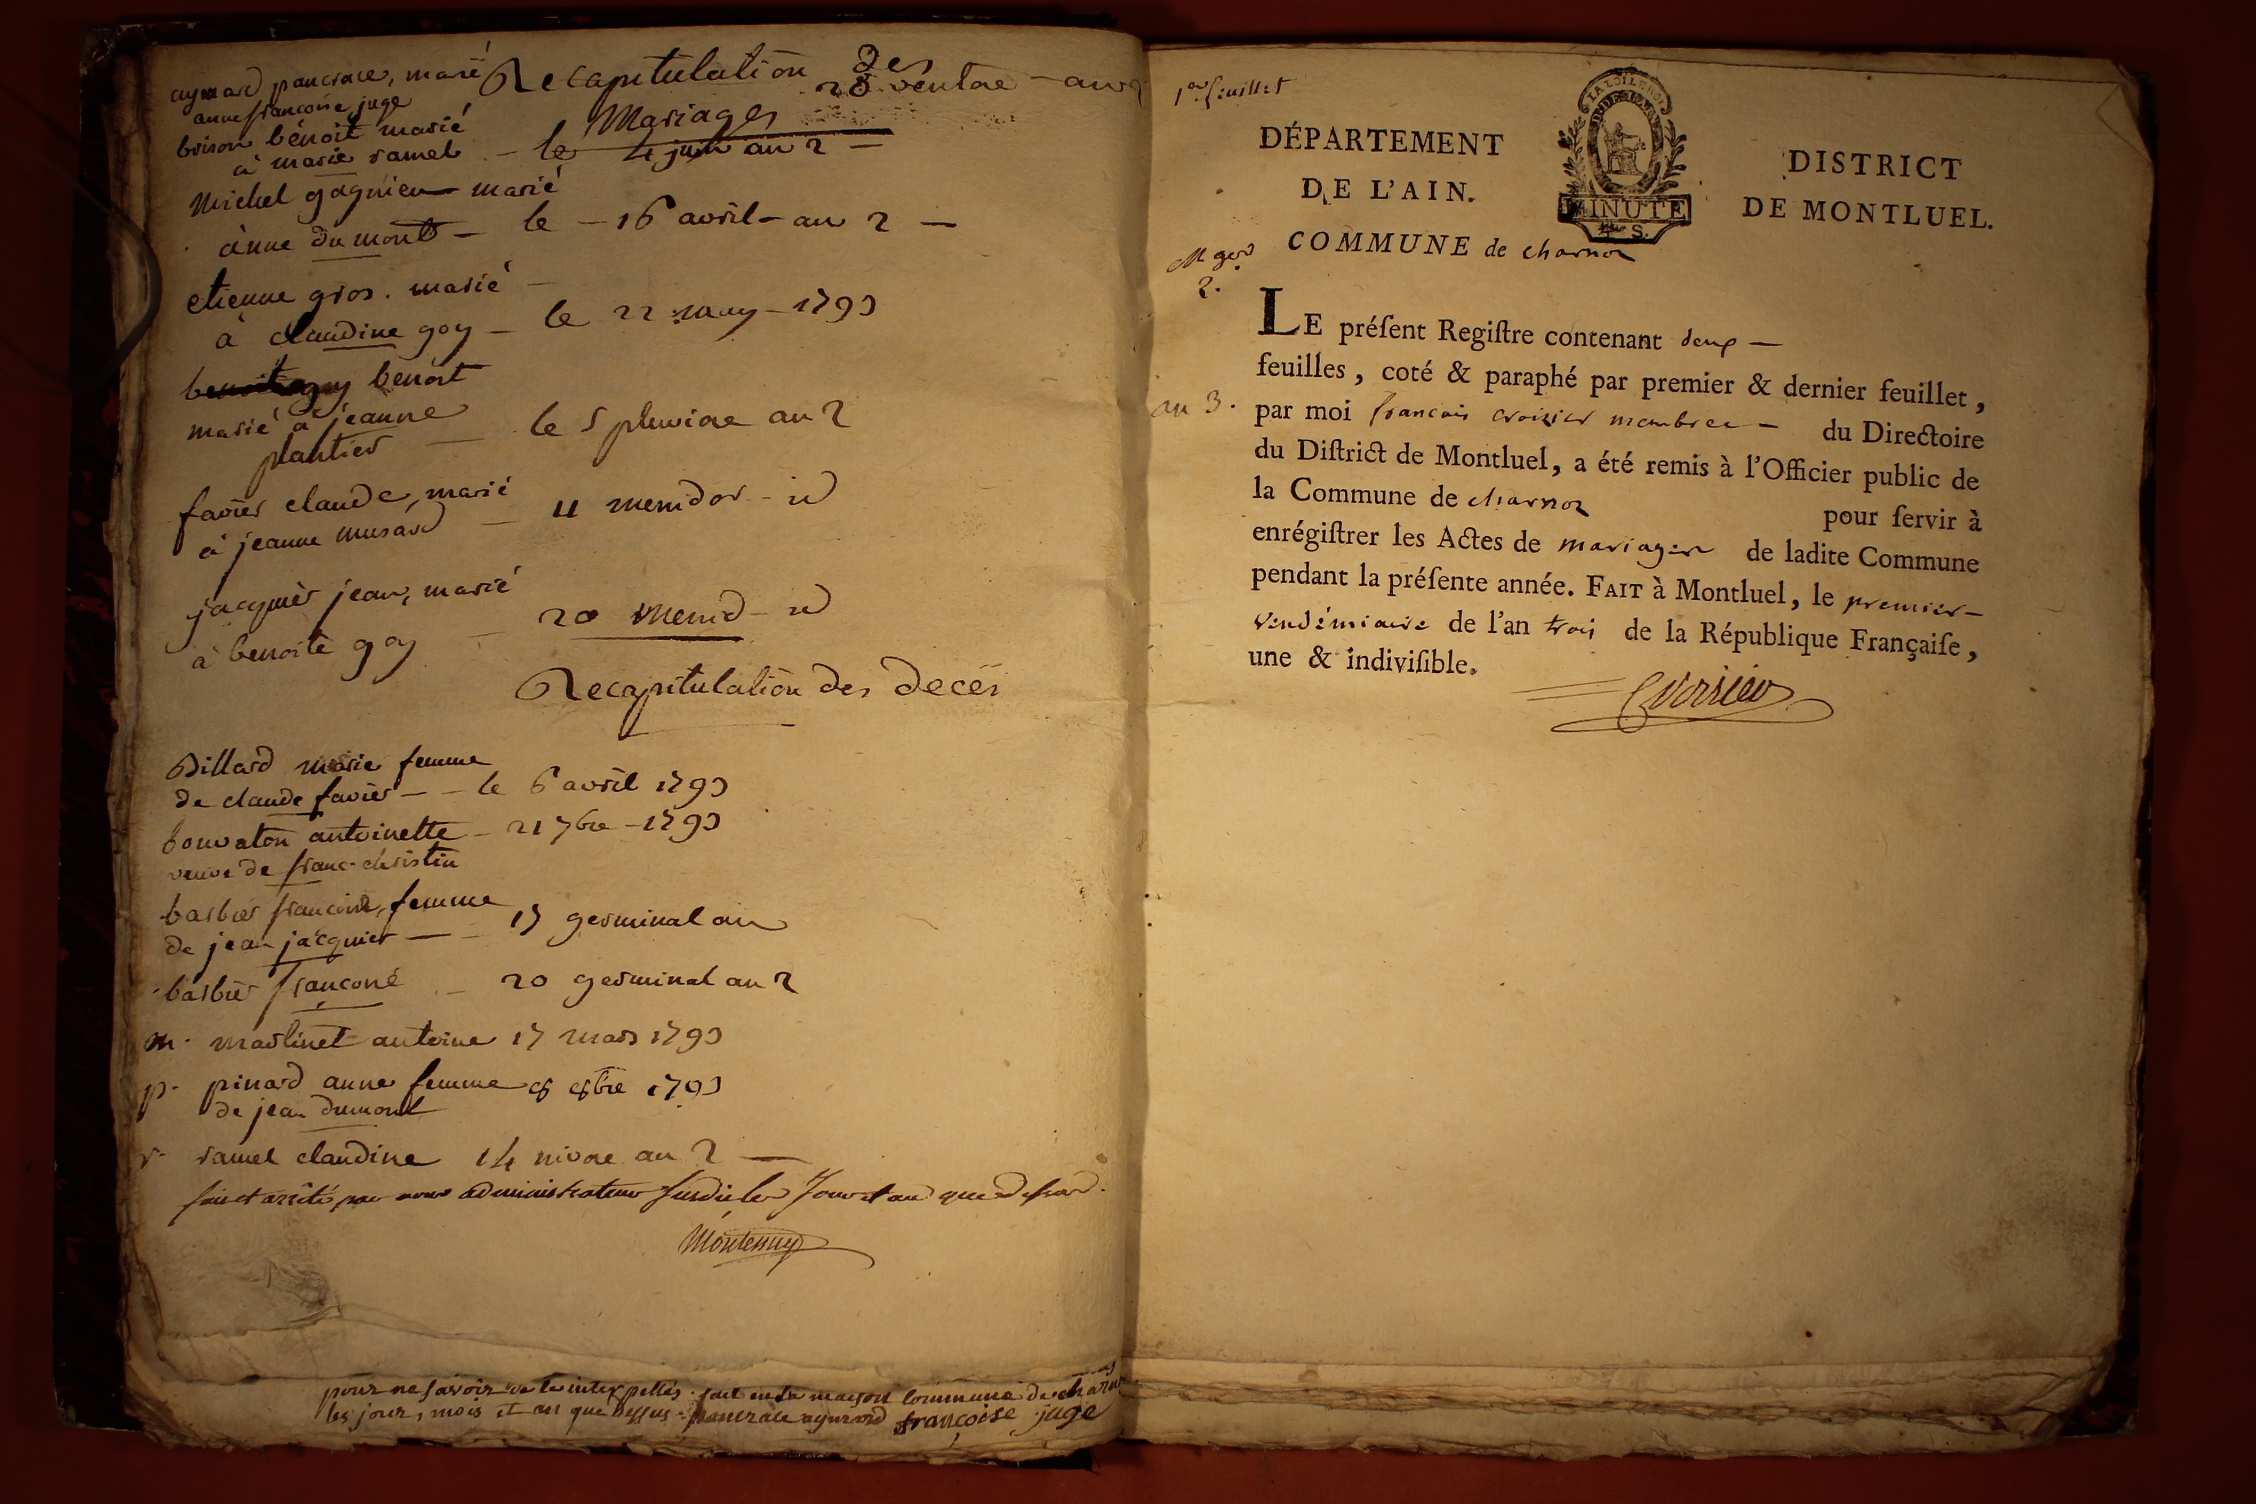 Recapitulation Des
Mariages
aymard pancrace, marié 28 ventôe - an 2
anne françoise juge
brison bénoit marié
à marie ramel - le 4 juin an 2 -
Michel gagnieu marié
ànne dumont - le - 16 avril - an 2 -
etienne gros. marié -
à claudine goy - le 22 may - 1793
benoit
marié à jeanne
plantier - le 5 pluviôe an 2
favier claude, marié
à jeanne musard - 11 messidor - id
jacquier jean, marié
à benoite goy - 20 messid - id
Recapitulation des decès
Billard marie femme
de claude favier - - le 6 avril 1793
bouvaton antoinette - 21 7bre - 1793
veuve de franc. christin
barbier françoise, femme
de jean jacquier - - 15 germinal an
barbier françoise - 20 germinal an 2
m. martinet antoine 17 mars 1793
p. pinard anne femme 8 8bre 1793
de jean dumont
r. ramel claudine 14 nivoe an 2 -
fait et arrêté par nous administrateur susdit les jour et an que
Montessuy
pour ne savoir de ce interpellés. fait en la maison commune de charnoz
les jour, mois et an que dessus. pancrace aymard françoise juge
1er feuillet
LA LOI LE ROI
DEP. DE L'AIN
MINUTE
4 S.
DÉPARTEMENT
DE L'AIN.
DISTRICT
DE MONTLUEL.
COMMUNE de charnoz
Mges
2.
an 3.
LE préſent Regiſtre contenant deux -
feuilles, coté & paraphé par premier & dernier feuillet,
par moi francois croizier membre - du Directoire
du Diſtrict de Montluel, a été remis à l'Officier public de
la Commune de charnoz pour ſervir à
enrégiſtrer les Actes de mariages de ladite Commune
pendant la préſente année. FAIT à Montluel, le premier -
vendémiaire de l'an trois de la République Françaiſe,
une & indiviſible.